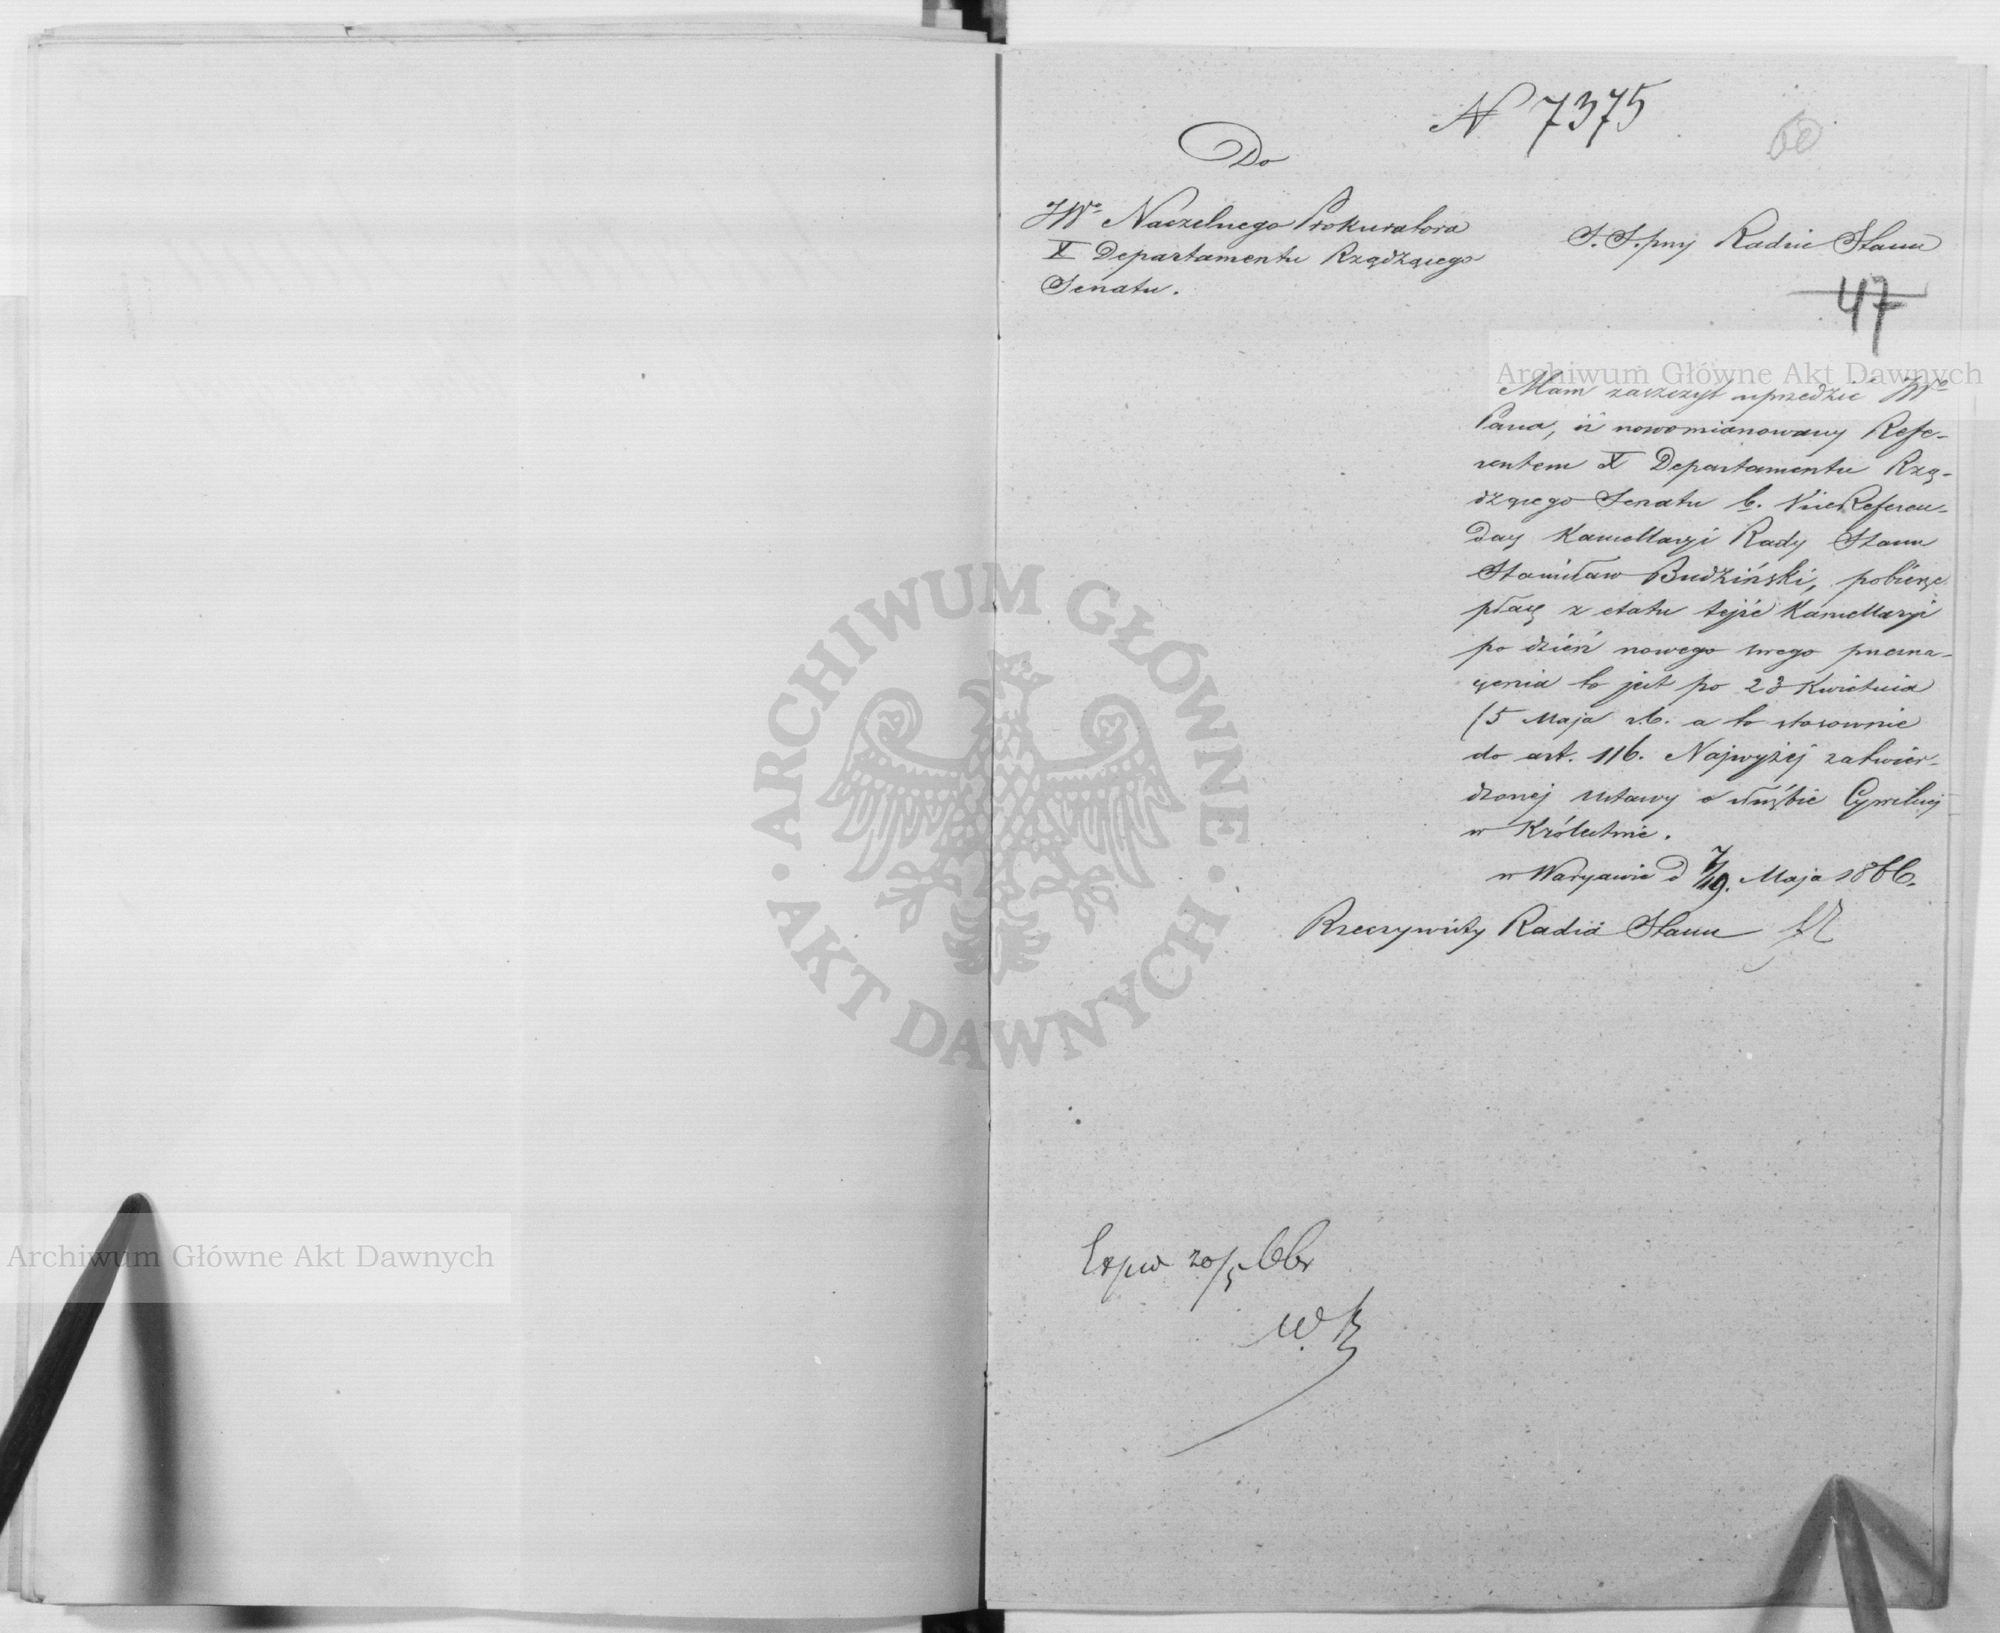 N 7375
60
Do
JWo Naczelnego Prokuratora
X Departamentu Rządzącego
Senatu.
Radzie Stanu
47
Archiwum Główne Akt Dawnych
Mam zaszczyt uprzedzić JWo
Pana, iż nowomianowany Refe-
rentem X Departamentu Rzą-
dzącego Senatu b. ViceReferen-
darz Kancellaryi Rady Stanu
Stanisław Budziński, pobierze
płacę z etatu tejże Kancellaryi
po dzień nowego swego przezna-
czenia to jest po 23 Kwietnia
/5 Maja r.b. a to stosownie
do art. 116. Najwyżej zatwier-
dzonej Ustawy o służbie Cywilnej
w Królestwie.
w Warszawie d 7/19. Maja 1866.
Rzeczywisty Radca Stanu
ARCHIWUM GŁÓWNE
AKT DAWNYCH
20/5 66r
W. B
Archiwum Główne Akt Dawnych